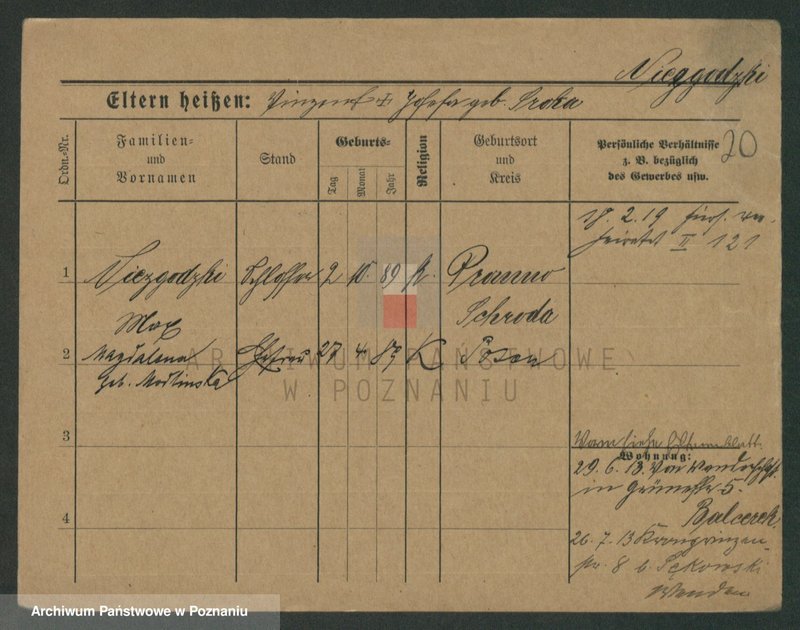 Niezgodzki
Eltern heißen: Vinzent I Josefa geb. Sroka
20
Ordn.-Nr.
Familien- und Vornamen
Stand
Geburts-
Tag
Monat
Jahr
Religion
Geburtsort und Kreis
Persönliche Verhältnisse
z. B. bezüglich
des Gewerbes usw.
2. 19
II 121
1 Niezgodzki Schlosser 2 10. 89 K. 
Schroda
Max
2 Magdalena Ehefrau 27 4. 87 K Posen
geb.
ARCHIWUM PAŃSTWOWE
W POZNANIU
3
Wohnung:
29. 6. 13. von
in 5.
Balcerek
4
26. 7. 13 Kronprinzen-
str. 8 b. Sękowski
Archiwum Państwowe w Poznaniu